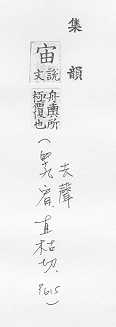 集韻
宙
說文
舟輿所
極覆也
去聲
宥 直祐切 P615)